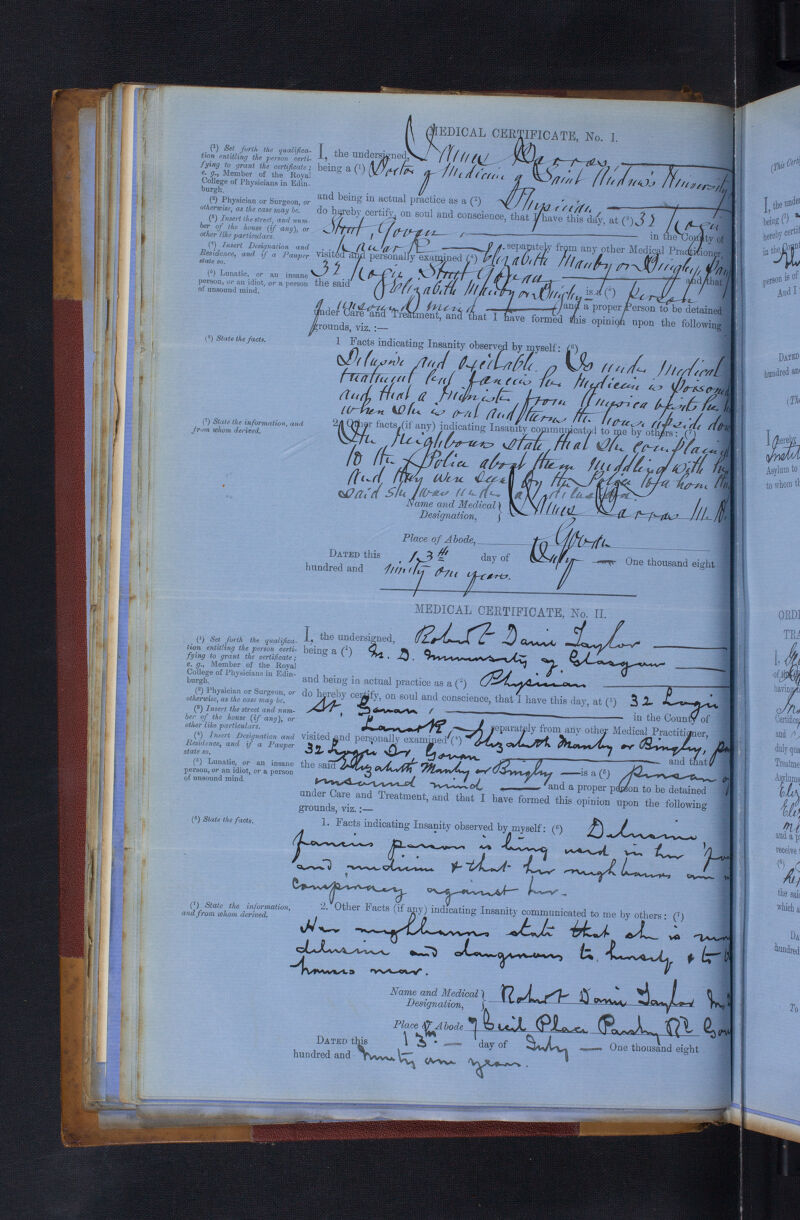 MEDICAL CERTIFICATE, No. I.
(1) Set forth the qualifica-
tion entitling the person certi-
fying to grant the certificate;
e. g., Member of the Royal
College of Physicians in Edin-
burgh.
(2) Physician or Surgeon, or
otherwise, as the case may be.
(3) Insert the street, and num-
ber of the house (if any), or
other like particulars.
(4) Insert Designation and
Residence, and if a Pauper
state so.
(5) Lunatic, or an insane
person, or an idiot, or a person
of unsound mind.
(6) State the facts.
(7) State the information, and
from whom derived.
I, the undersigned, James Barras
being a (1) Doctor of Medicine of Saint Andrew's University
and being in actual practice as a (2) Physician
do hereby certify, on soul and conscience, that I have this day, at (3) 32 Logie
Street, Govan in the County of
Lanark separately from any other Medical Practitioner,
visited and personally examined (4) Elizabeth Manby or Bingley,
32 Logie Street Govan and that
the said Elizabeth Manby or Bingley is a (5) person
of unsound mind and a proper Person to be detained
under Care and Treatment, and that I have formed this opinion upon the following
grounds, viz. :—
1 Facts indicating Insanity observed by myself: (6)
Delusive and excitable. Is under medical
treatment and fancies her medicine is poisoned
and that a Minister from America visits her
when she is out and turns the house upside down
2. Other facts (if any) indicating Insanity communicated to me by others: (7)
The neighbours state that she complained
to the Police about them meddling with
and they were by the Police to whom
said she was under a delusion
Name and Medical Designation, James Barras M.D.
Place of Abode, Govan
DATED this 13th day of July One thousand eight
hundred and ninety one years.
MEDICAL CERTIFICATE, No. II.
(1) Set forth the qualifica-
tion entitling the person certi-
fying to grant the certificate;
e. g., Member of the Royal
College of Physicians in Edin-
burgh.
(2) Physician or Surgeon, or
otherwise, as the case may be.
(3) Insert the street and num-
ber of the house (if any), or
other like particulars.
(4) Insert Designation and
Residence, and if a Pauper
state so.
(5) Lunatic, or an insane
person, or an idiot, or a person
of unsound mind.
(6) State the facts.
(7) State the information,
and from whom derived.
I, the undersigned, Robert Taylor
being a (1) M. D. University of Glasgow
and being in actual practice as a (2) Physician
do hereby certify, on soul and conscience, that I have this day, at (3) 32 Logie
St, Govan, in the County of
Lanark separately from any other Medical Practitioner,
visited and personally examined (4) Elizabeth Manby or Bingley,
32 Logie St. Govan and that
the said Elizabeth Manby or Bingley is a (5) person of
unsound mind and a proper person to be detained
under Care and Treatment, and that I have formed this opinion upon the following
grounds, viz. :—
1. Facts indicating Insanity observed by myself: (6) Delusive,
fancies poison is being used in her
and medicine & that her neighbours are
conspiracy against her.
2. Other Facts (if any) indicating Insanity communicated to me by others: (7)
Her neighbours state that she is
delusive and dangerous to herself & to
houses near.
Name and Medical Designation, Robert Taylor
Place of Abode 7 Cecil Place Paisley Rd
DATED this 13th day of July One thousand eight
hundred and Ninety one years.